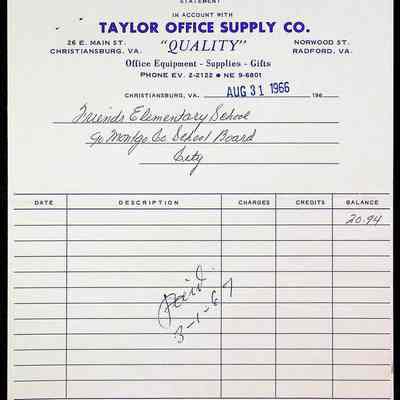 STATEMENT
IN ACCOUNT WITH
TAYLOR OFFICE SUPPLY CO.
26 E. MAIN ST. "QUALITY" NORWOOD ST.
CHRISTIANSBURG, VA. RADFORD, VA.
Office Equipment - Supplies - Gifts
PHONE EV. 2-2122 • NE 9-6801
CHRISTIANSBURG, VA. AUG 31 1966 196
Friends Elementary School
% Montgo Co School Board
City
DATE DESCRIPTION CHARGES CREDITS BALANCE
20.94
Paid
3-1-67